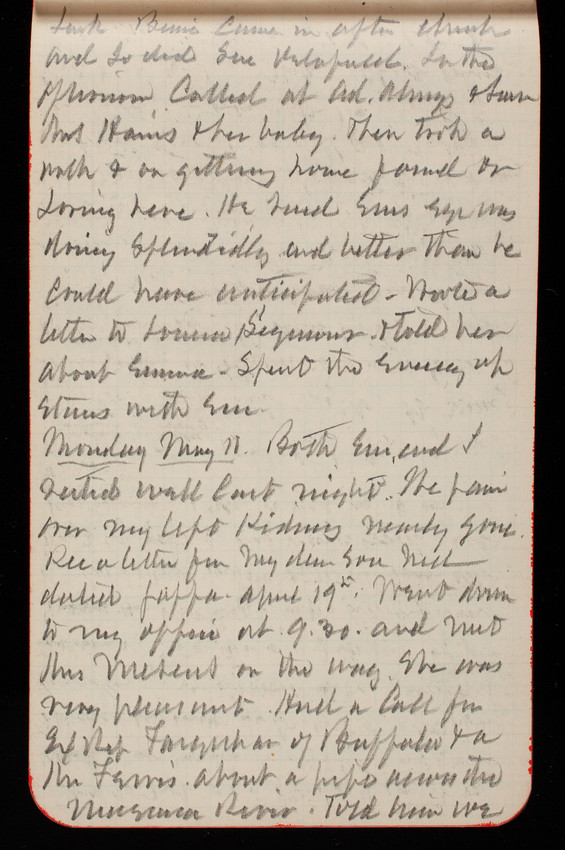 came in after church
and so did Gen In the
afternoon Called at Ad. Almys & saw
Mrs Hains & her baby. Then took a
walk & on getting home found Dr
Loring here. He said Ems eye was
doing Splendidly and better than he
could have anticipated - Wrote a
letter to Louisa Seymour & told her
about Emma - Spent the Evening up
stairs with Em.
Monday May 11. Both Em and I
rested well last night. The pain
over my left Kidney nearly gone.
Rec a letter fm my dear Son
dated Jaffa April 19th. Went down
to my office at 9.30. and met
Mrs on the way. She was
very pleasant. Had a Call fm
Ex Rep Farquhar of Buffalo & a
Mr Ferris about a pipe across the
Niagara River. Told him we